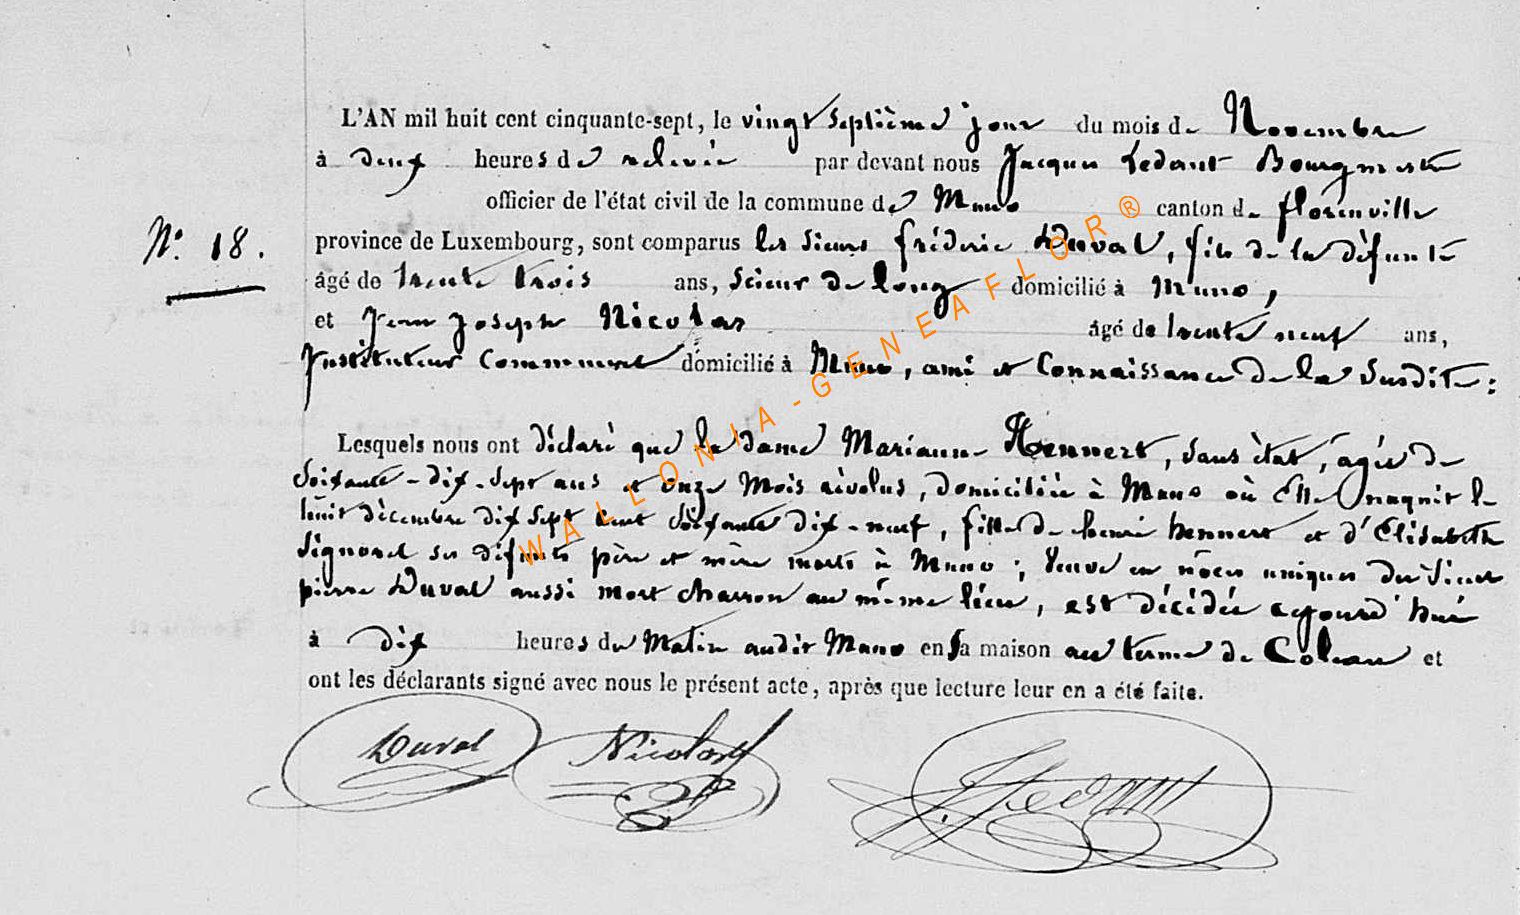 L'AN mil huit cent cinquante-sept, le vingt septième jour du mois de Novembre
à deux heures de relevée par devant nous Jacques Ledant Bourgmestre
officier de l'état civil de la commune de Muno canton de florenville
N.° 18.
province de Luxembourg, sont comparus les Sieurs fréderic Duval, fils de la défunte
âgé de trente trois ans, Scieur de long domicilié à Muno,
et Jean Joseph Nicolas âgé de trente neuf ans,
Instituteur Communal domicilié à Muno, ami et Connaissance de la Susdite:
Lesquels nous ont déclaré que la dame Marianne Hennert, Sans état, agée de
Soixante-dix-Sept ans et onze Mois révolus, domiciliée à Muno où Elle naquit le
huit décembre dix Sept Cent Soixante dix-neuf, fille de henri hennert et d'Elisabeth
Signorel ses défunts père et mère morts à Muno; Veuve en nôces uniques du Sieur
pierre Duval aussi mort charron au même lieu, est décédée aujourd'hui
à dix heures du Matin audit Muno en sa maison au terme de et
ont les déclarants signé avec nous le présent acte, après que lecture leur en a été faite.
Duval Nicolas J. Ledant
WALLONIA-GENEAFLOR®